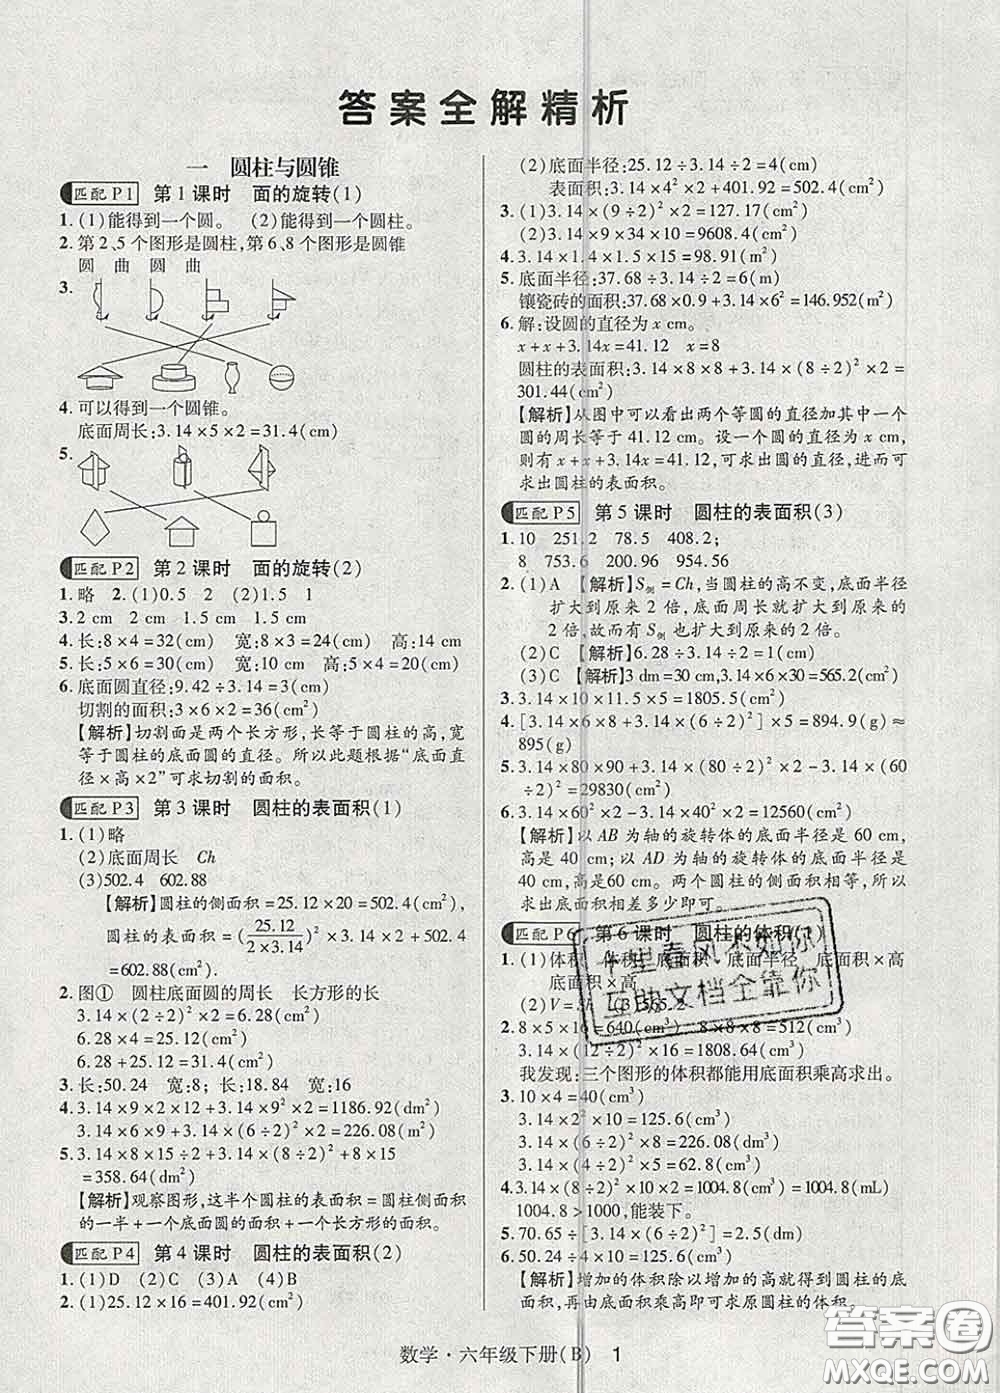 答案全解精析
一 圆柱与圆锥
匹配 P1 第1课时 面的旋转(1)
1.(1)能得到一个圆。 (2)能得到一个圆柱。
2. 第2、5个图形是圆柱,第6、8个图形是圆锥
圆 曲 圆 曲
3.
4. 可以得到一个圆锥。
底面周长:3.14×5×2=31.4(cm)
5.
匹配 P2 第2课时 面的旋转(2)
1. 略 2.(1)0.5 2 (2)1.5 1
3. 2 cm 2 cm 1.5 cm 1.5 cm
4. 长:8×4=32(cm) 宽:8×3=24(cm) 高:14 cm
5. 长:5×6=30(cm) 宽:10 cm 高:5×4=20(cm)
6. 底面圆直径:9.42÷3.14=3(cm)
切割的面积:3×6×2=36(cm²)
【解析】切割面是两个长方形,长等于圆柱的高,宽
等于圆柱的底面圆的直径。所以此题根据“底面直
径×高×2”可求切割的面积。
匹配 P3 第3课时 圆柱的表面积(1)
1.(1)略
(2)底面周长 Ch
(3)502.4 602.88
【解析】圆柱的侧面积=25.12×20=502.4(cm²),
圆柱的表面积=(25.12/(2×3.14))²×3.14×2+502.4
=602.88(cm²)。
2. 图① 圆柱底面圆的周长 长方形的长
3.14×(2÷2)²×2=6.28(cm²)
6.28×4=25.12(cm²)
6.28+25.12=31.4(cm²)
3. 长:50.24 宽:8; 长:18.84 宽:5
4. 3.14×9×2×12+3.14×9²×2=1186.92(dm²)
3.14×6×9+3.14×(6÷2)²×2=226.08(m²)
5. 3.14×8×15÷2+3.14×(8÷2)²+8×15
=358.64(dm²)
【解析】观察图形,这半个圆柱的表面积=圆柱侧面积
的一半+一个底面圆的面积+一个长方形的面积。
匹配 P4 第4课时 圆柱的表面积(2)
1.(1)D (2)C (3)A (4)B
2.(1)25.12×16=401.92(cm²)
(2)底面半径:25.12÷3.14÷2=4(cm)
表面积:3.14×4²×2+401.92=502.4(cm²)
3.(1)3.14×(9÷2)²×2=127.17(cm²)
(2)3.14×9×34×10=9608.4(cm²)
4. 3.14×1.4×1.5×15=98.91(m²)
5. 底面半径:37.68÷3.14÷2=6(m)
镶瓷砖的面积:37.68×0.9+3.14×6²=146.952(m²)
6. 解:设圆的直径为x cm。
x+x+3.14x=41.12 x=8
圆柱的表面积:3.14×8×8+3.14×(8÷2)²×2=
301.44(cm²)
【解析】从图中可以看出两个等圆的直径加其中一个
圆的周长等于41.12 cm。设一个圆的直径为x cm,
则有x+x+3.14x=41.12,可求出圆的直径,进而可
求出圆柱的表面积。
匹配 P5 第5课时 圆柱的表面积(3)
1. 10 251.2 78.5 408.2;
8 753.6 200.96 954.56
2.(1)A 【解析】S侧=Ch,当圆柱的高不变,底面半径
扩大到原来2倍,底面周长就扩大到原来的
2倍,故而有S侧也扩大到原来2倍。
(2)C 【解析】6.28÷3.14÷2=1(cm)
(3)C 【解析】3 dm=30 cm,3.14×6×30=565.2(cm²)
3. 3.14×10×11.5×5=1805.5(cm²)
4. [3.14×6×8+3.14×(6÷2)²]×5=894.9(g)≈
895(g)
5. 3.14×80×90+3.14×(80÷2)²×2-3.14×(60
÷2)²×2=29830(cm²)
6. 3.14×60²×2-3.14×40²×2=12560(cm²)
【解析】以AB为轴的旋转体的底面半径是60 cm,
高是40 cm;以AD为轴的旋转体的底面半径是
40 cm,高是60 cm。两个圆柱的侧面积相等,所以
求出底面积相差多少即可。
匹配 P6 第6课时 圆柱的体积(1)
1.(1)体积 体积 底面积 底面半径 底面积×高
底面积×高
(2)V=Sh (3)565.2
2. 8×5×16=640(cm³) 8×8×8=512(cm³)
3.14×(12÷2)²×16=1808.64(cm³)
我发现:三个图形的体积都能用底面积乘高求出。
3. 10×4=40(cm³)
3.14×2²×10=125.6(cm³)
3.14×(6÷2)²×8=226.08(dm³)
3.14×(4÷2)²×10=125.6(cm³)
4. 3.14×(8÷2)²×10×2=1004.8(cm³)=1004.8(mL)
1004.8>1000,能装下。
5. 70.65÷[3.14×(6÷2)²]=2.5(dm)
6. 50.24÷4×10=125.6(cm³)
【解析】增加的体积除以增加的高就得到圆柱的底
面积,再由底面积乘高即可求原圆柱的体积。
千里春风不如你
互助文档全靠你
数学·六年级下册(B) 1
答案圈
MXQE.COM